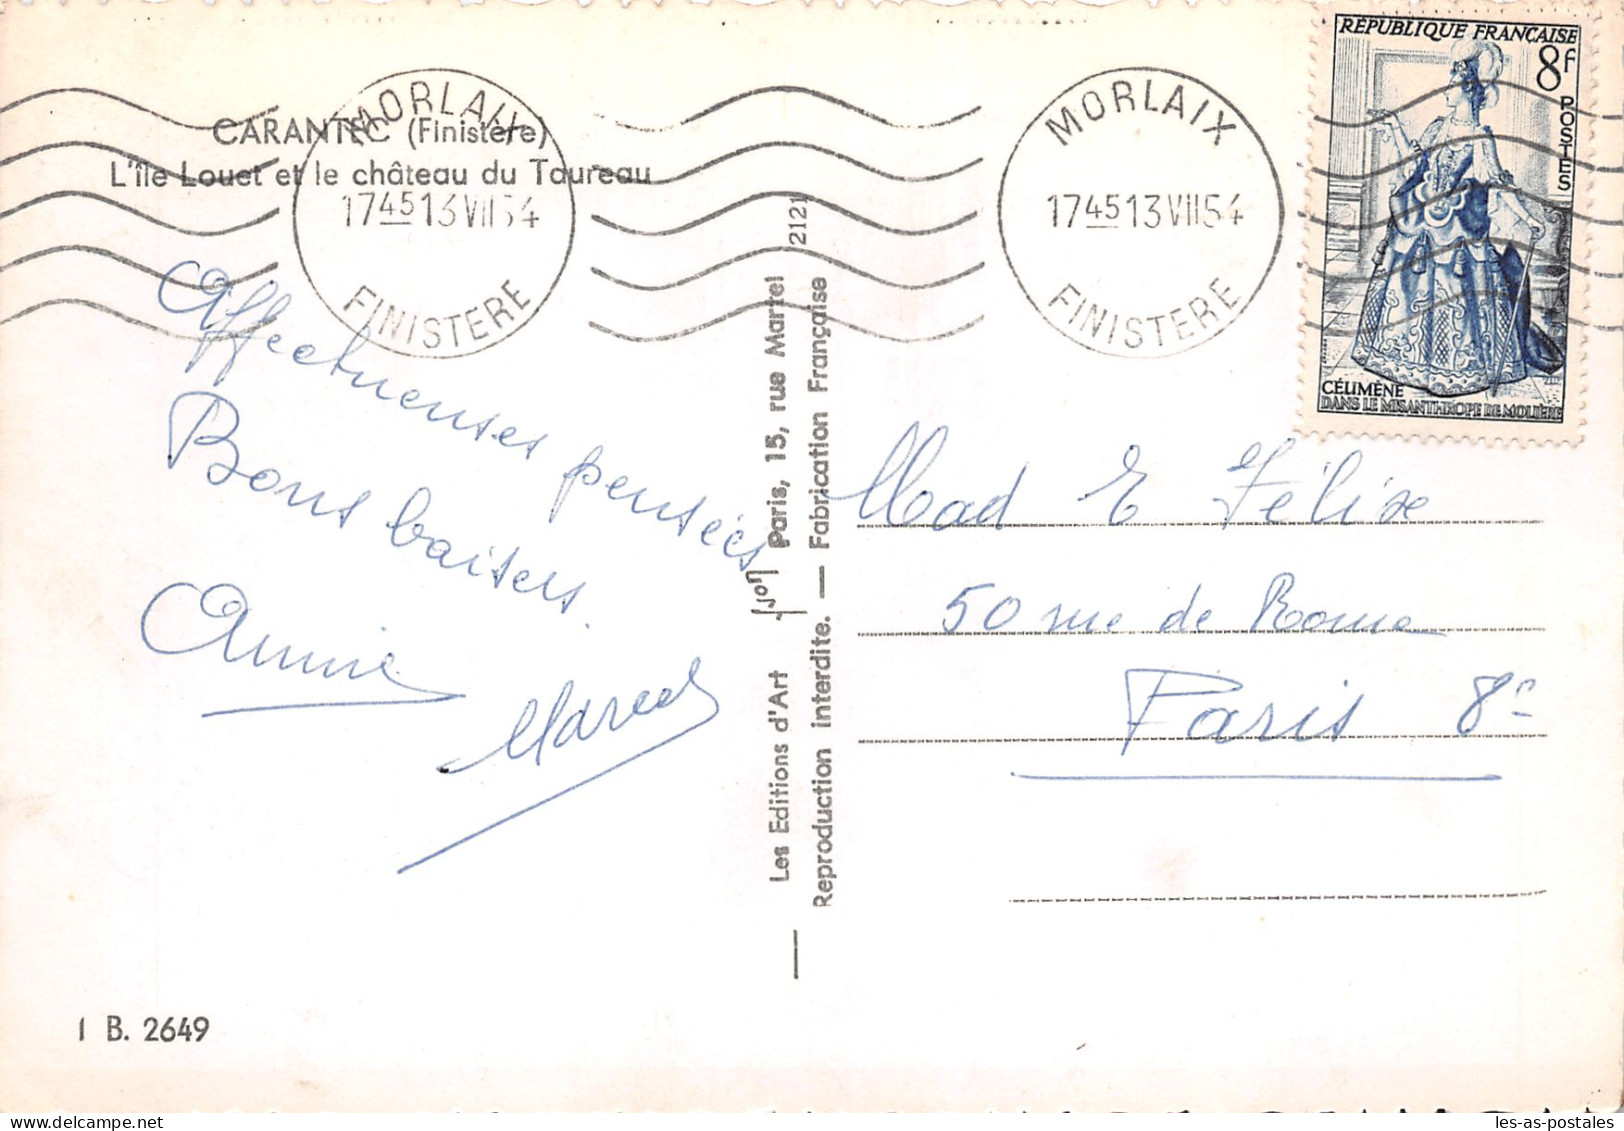 CARANTEC (Finistère)
L'île Louet et le château du Taureau
MORLAIX
17 45 13 VII 54
FINISTERE
MORLAIX
17 45 13 VII 54
FINISTERE
RÉPUBLIQUE FRANÇAISE
8F
POSTES
CÉLIMÈNE
DANS LE MISANTHROPE DE MOLIÈRE
Affectueuses pensées
Bons baisers.
Annie
Marcel
Les Editions d'Art Paris, 15, rue Martel 2121
Reproduction interdite. — Fabrication Française
Mad E Félix
50 rue de Rome
Paris 8e
I B. 2649
les-as-postales